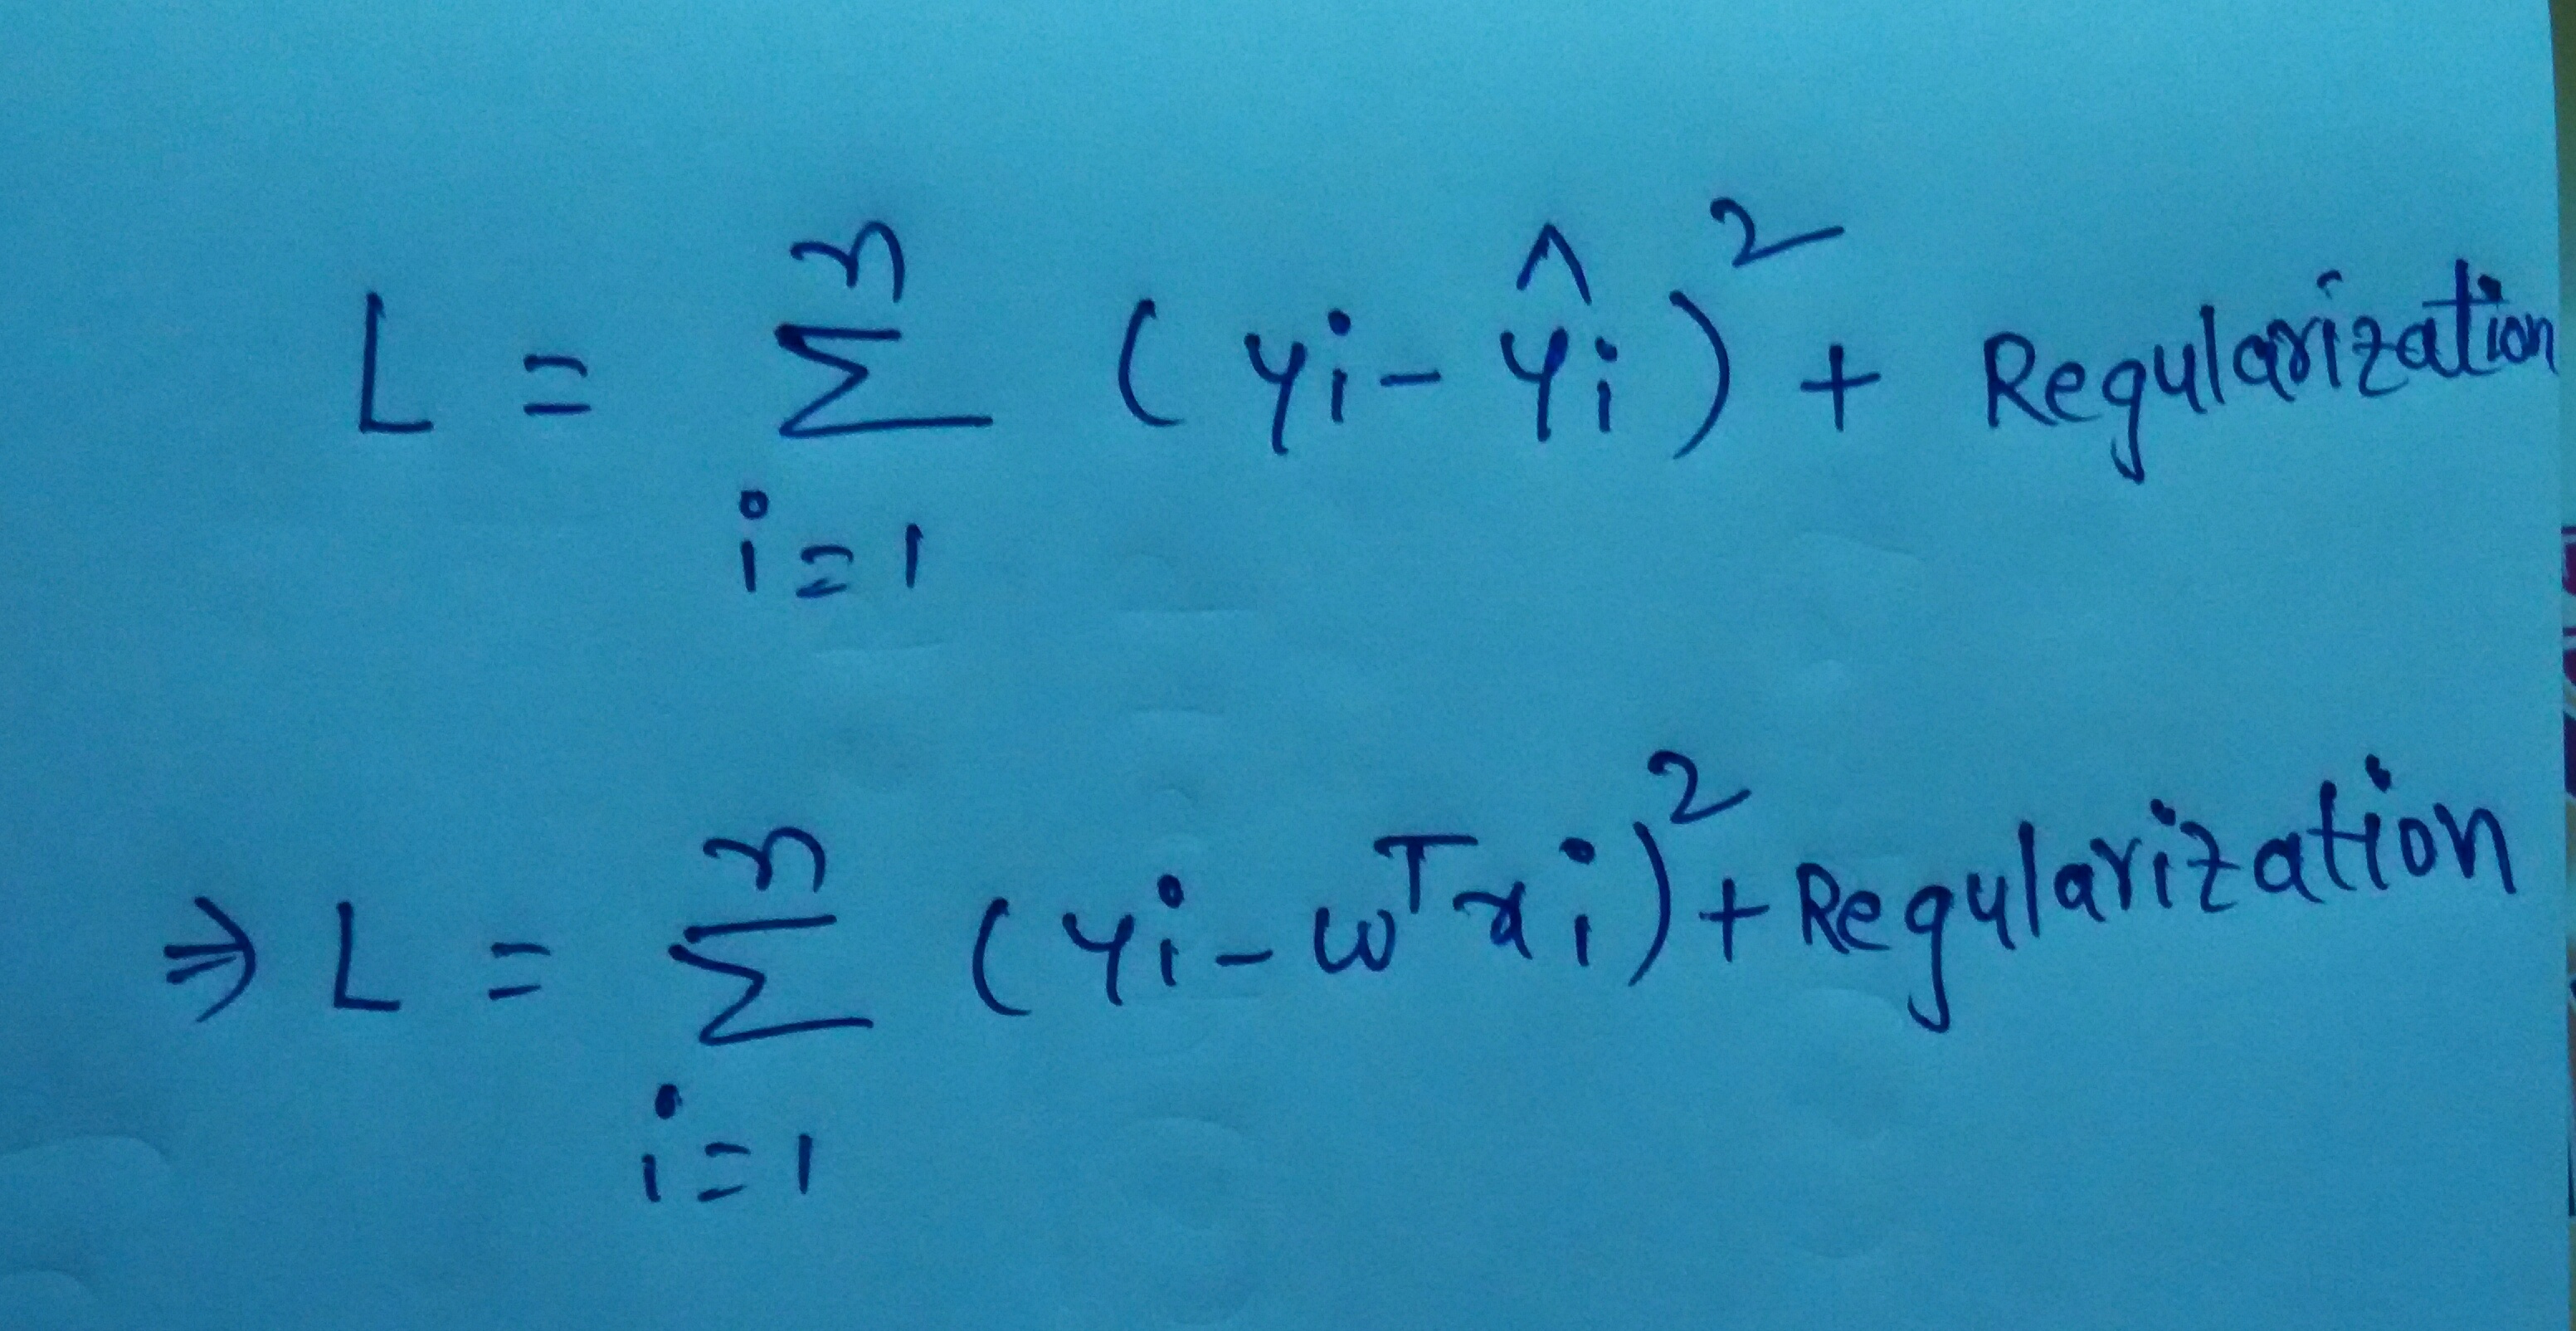 L = n∑i=1 (yi - ŷi)² + Regularization
⇒ L = n∑i=1 (yi - wᵀxi)² + Regularization